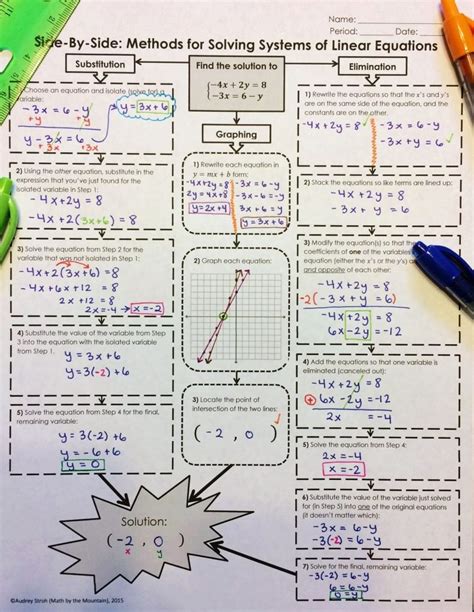 Name:
Period: Date:
Side-By-Side: Methods for Solving Systems of Linear Equations
Substitution
Find the solution to
{-4x + 2y = 8
-3x = 6 - y
Elimination
Choose an equation and isolate (solve for) a
variable:
-3x = 6 - y
+y +y
y - 3x = 6
+3x +3x
y = 3x + 6
2) Using the other equation, substitute in the
expression that you've just found for the
isolated variable in Step 1:
-4x + 2y = 8
-4x + 2(3x+6) = 8
3) Solve the equation from Step 2 for the
variable that was not isolated in Step 1:
-4x + 2(3x+6) = 8
-4x + 6x + 12 = 8
2x + 12 = 8
2x = -4 → x = -2
4) Substitute the value of the variable from
Step 3 into the equation with the isolated
from Step 1.
y = 3x + 6
y = 3(-2) + 6
5) Solve the equation from Step 4 for the final,
remaining variable:
y = 3(-2) + 6
y = -6 + 6
y = 0
Graphing
1) Rewrite each equation in
y = mx + b form:
-4x + 2y = 8
2y = 4x + 8
y = 2x + 4
-3x = 6 - y
-3x - 6 = -y
3x + 6 = y
y = 3x + 6
2) Graph each equation:
3) Locate the point of
intersection of the two lines:
(-2, 0)
1) Rewrite the equations so that the x's and y's
are on the same side of the equation, and the
constants are on the other.
-4x + 2y = 8
-3x = 6 - y
-3x + y = 6
2) Stack the equations so like terms are lined up:
-4x + 2y = 8
-3x + y = 6
3) Modify the equation(s) so that the
coefficients of one of the variables
equation (either the x's or the y's) are
and opposite of each other:
-4x + 2y = 8
-2(-3x + y = 6)
-4x + 2y = 8
6x - 2y = -12
4) Add the equations so that one variable is
eliminated (canceled out):
-4x + 2y = 8
+ 6x - 2y = -12
2x = -4
5) Solve the equation from Step 4:
2x = -4
x = -2
6) Substitute the value of the variable just solved
for (in Step 5) into one of the original equations
(it doesn't matter which):
-3x = 6 - y
-3(-2) = 6 - y
7) Solve for the final, remaining variable:
-3(-2) = 6 - y
6 = 6 - y
0 = y
Solution:
(-2, 0)
x y
©Audrey Stroh (Math by the Mountain), 2015